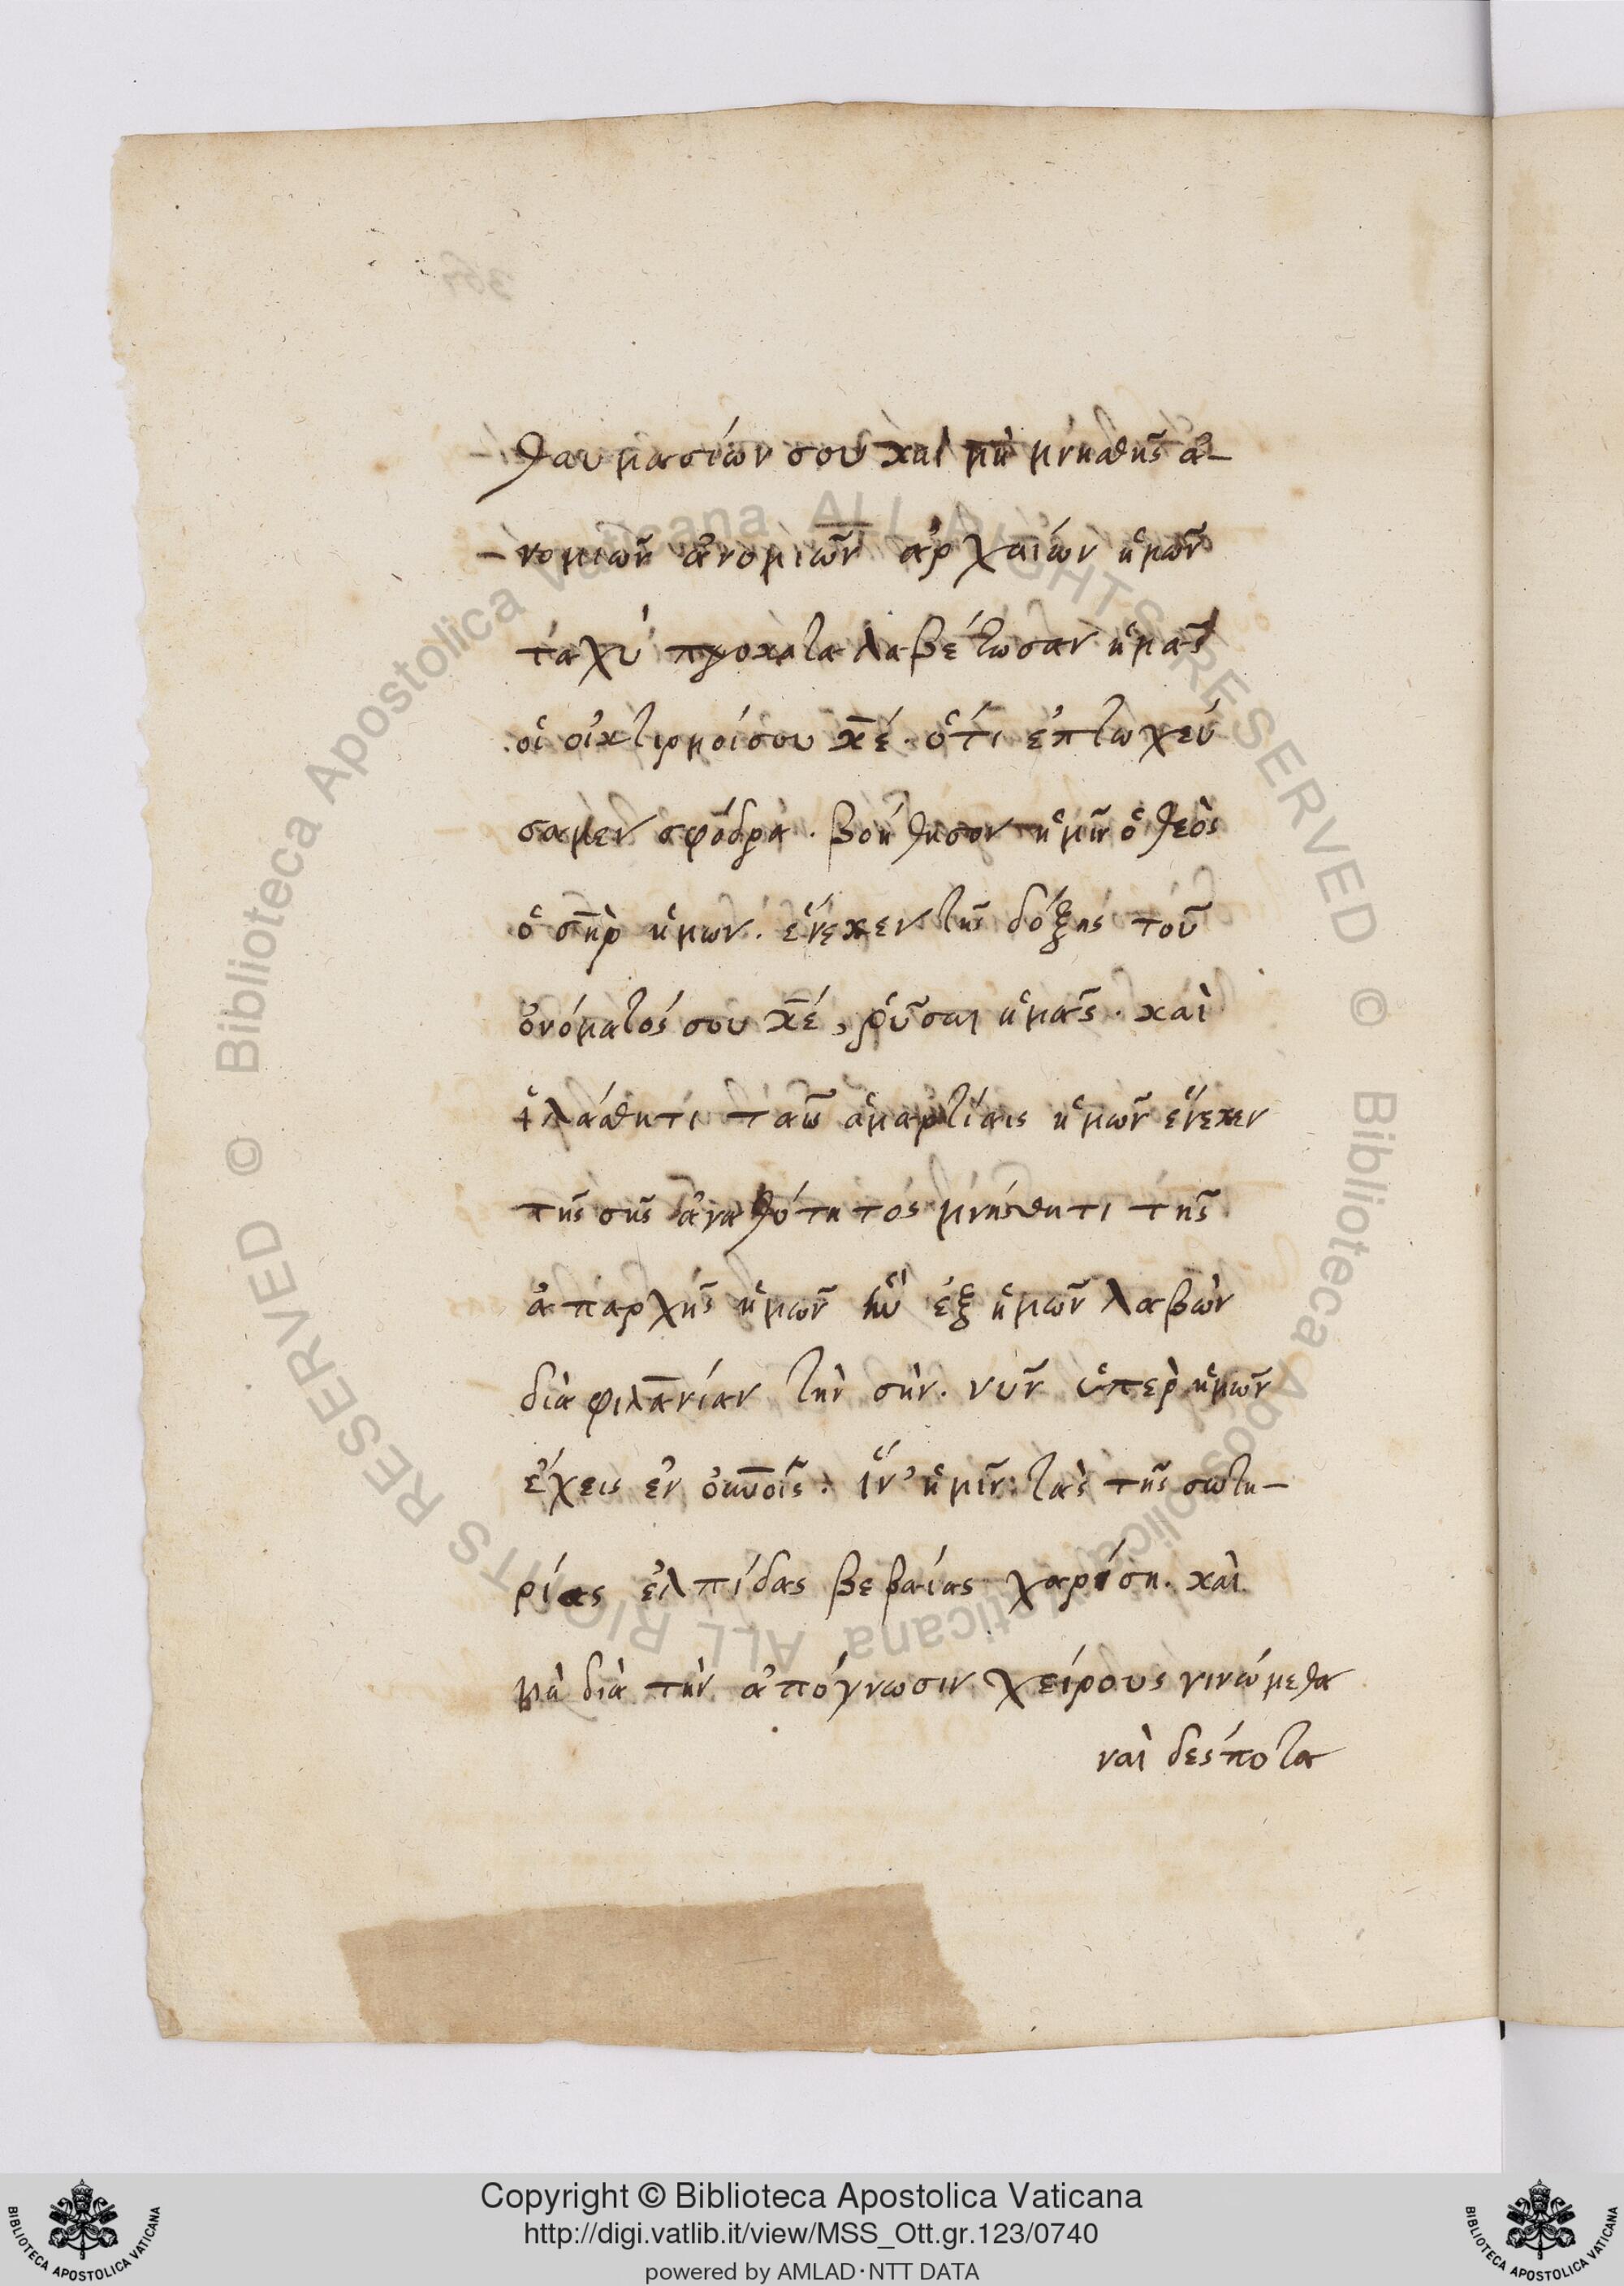 θαυμασίων σου καὶ μὴ μνησθῆς ἀ-
-νομιῶν ἀνομιῶν ἀρχαίων ἡμῶν
ταχὺ προκαταλαβέτωσαν ἡμᾶς
οἱ οἰκτιρμοί σου κ̅ε̅. ὅτι ἐπτωχεύ
σαμεν σφόδρα. βοήθησον ἡμῖν ὁ θεὸς
ὁ σ̅η̅ρ ἡμῶν. ἕνεκεν τῆς δόξης τοῦ
ὀνόματός σου κ̅ε̅, ῥῦσαι ἡμᾶς. καὶ
ἱλάσθητι ταῖς ἁμαρτίαις ἡμῶν ἕνεκεν
τῆς σῆς ἀγαθότητος μνήσθητι τῆς
ἀπαρχῆς ἡμῶν ἣν ἐξ ἡμῶν λαβὼν
διὰ φιλα̅νίαν τὴν σὴν. νῦν ὑπὲρ ἡμῶν
ἔχεις ἐν οὐν̅οῖς. ἵν' ἡμῖν τὰς τῆς σωτη-
ρίας ἐλπίδας βεβαίας χαρίση. καὶ
μὴ διὰ τὴν ἀπόγνωσιν χείρους γινώμεθα
ναὶ δέσποτα
Copyright © Biblioteca Apostolica Vaticana
http://digi.vatlib.it/view/MSS_Ott.gr.123/0740
powered by AMLAD·NTT DATA
BIBLIOTECA APOSTOLICA VATICANA
BIBLIOTECA APOSTOLICA VATICANA
© Biblioteca Apostolica Vaticana ALL RIGHTS RESERVED
© Biblioteca Apostolica Vaticana ALL RIGHTS RESERVED